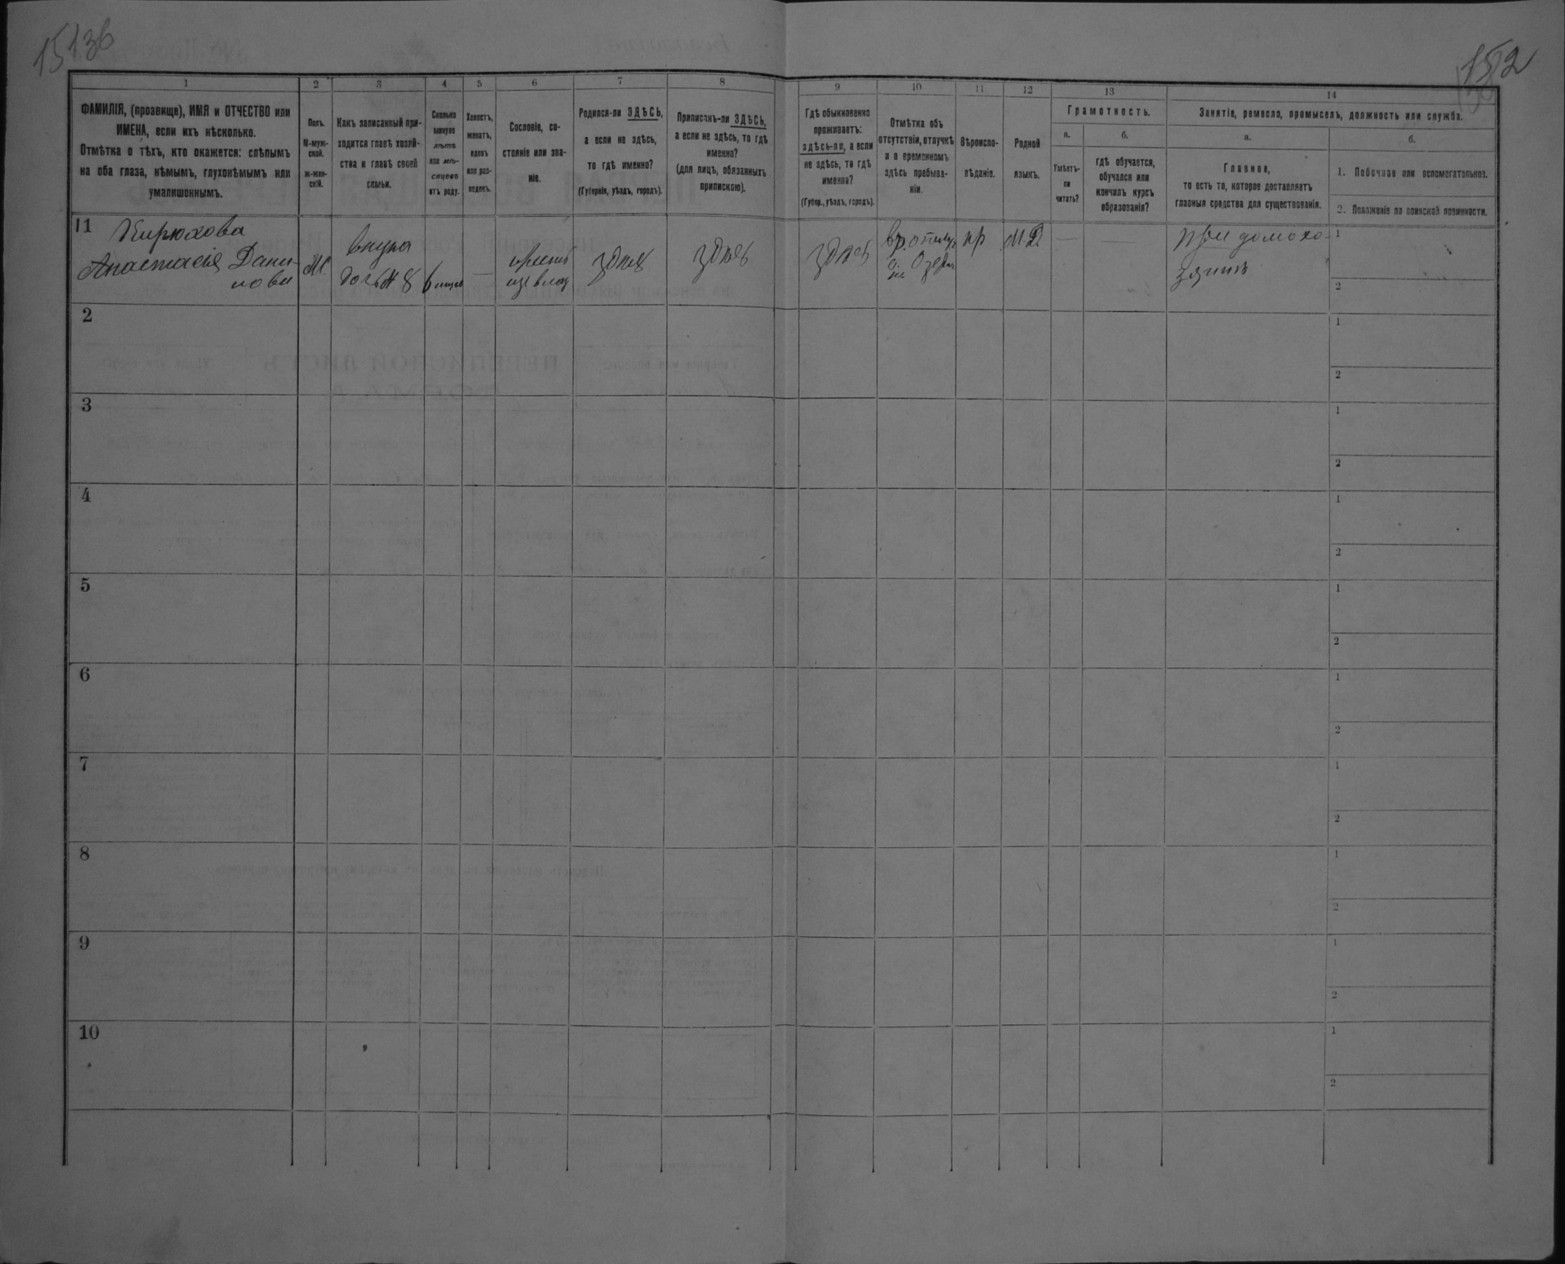 15136
152
1
2
3
4
5
6
7
8
9
10
11
12
13
14
ФАМИЛІЯ, (прозвище), ИМЯ и ОТЧЕСТВО или
ИМЕНА, если ихъ нѣсколько.
Отмѣтка о тѣхъ, кто окажется: слѣпымъ
на оба глаза, нѣмымъ, глухонѣмымъ или
умалишоннымъ.
Полъ.
М-муж-
ской.
Ж-жен-
скій.
Какъ записанный при-
ходится главѣ хозяй-
ства и главѣ своей
семьи.
Сколько
минуло
лѣтъ
или мѣ-
сяцевъ
отъ роду.
Холостъ,
женатъ,
вдовъ
или раз-
веденъ.
Сословіе, со-
стояніе или зва-
ніе.
Родился-ли ЗДѢСЬ,
а если не здѣсь,
то гдѣ именно?
(Губернія, уѣздъ, городъ).
Приписанъ-ли ЗДѢСЬ,
а если не здѣсь, то гдѣ
именно?
(для лицъ, обязанныхъ
припискою).
Гдѣ обыкновенно
проживаетъ:
здѣсь-ли, а если
не здѣсь, то гдѣ
именно?
(Губер., уѣздъ, городъ).
Отмѣтка объ
отсутствіи, отлучкѣ
и о временномъ
здѣсь пребыва-
ніи.
Вѣроиспо-
вѣданіе.
Родной
языкъ.
Грамотность.
а.
Умѣетъ-
ли
читать?
б.
гдѣ обучается,
обучался или
кончилъ курсъ
образованія?
Занятіе, ремесло, промыселъ, должность или служба.
а.
Главное,
то есть то, которое доставляетъ
главныя средства для существованія.
б.
1. Побочное или вспомогательное.
2. Положеніе по воинской повинности.
11
Кирюхова
Анастасія Дани-
лова
внучка
дочь № 8
6
здѣсь
здѣсь
здѣсь
пр
при домохо-
зяинѣ
1
2
2
1
2
3
1
2
4
1
2
5
1
2
6
1
2
7
1
2
8
1
2
9
1
2
10
1
2